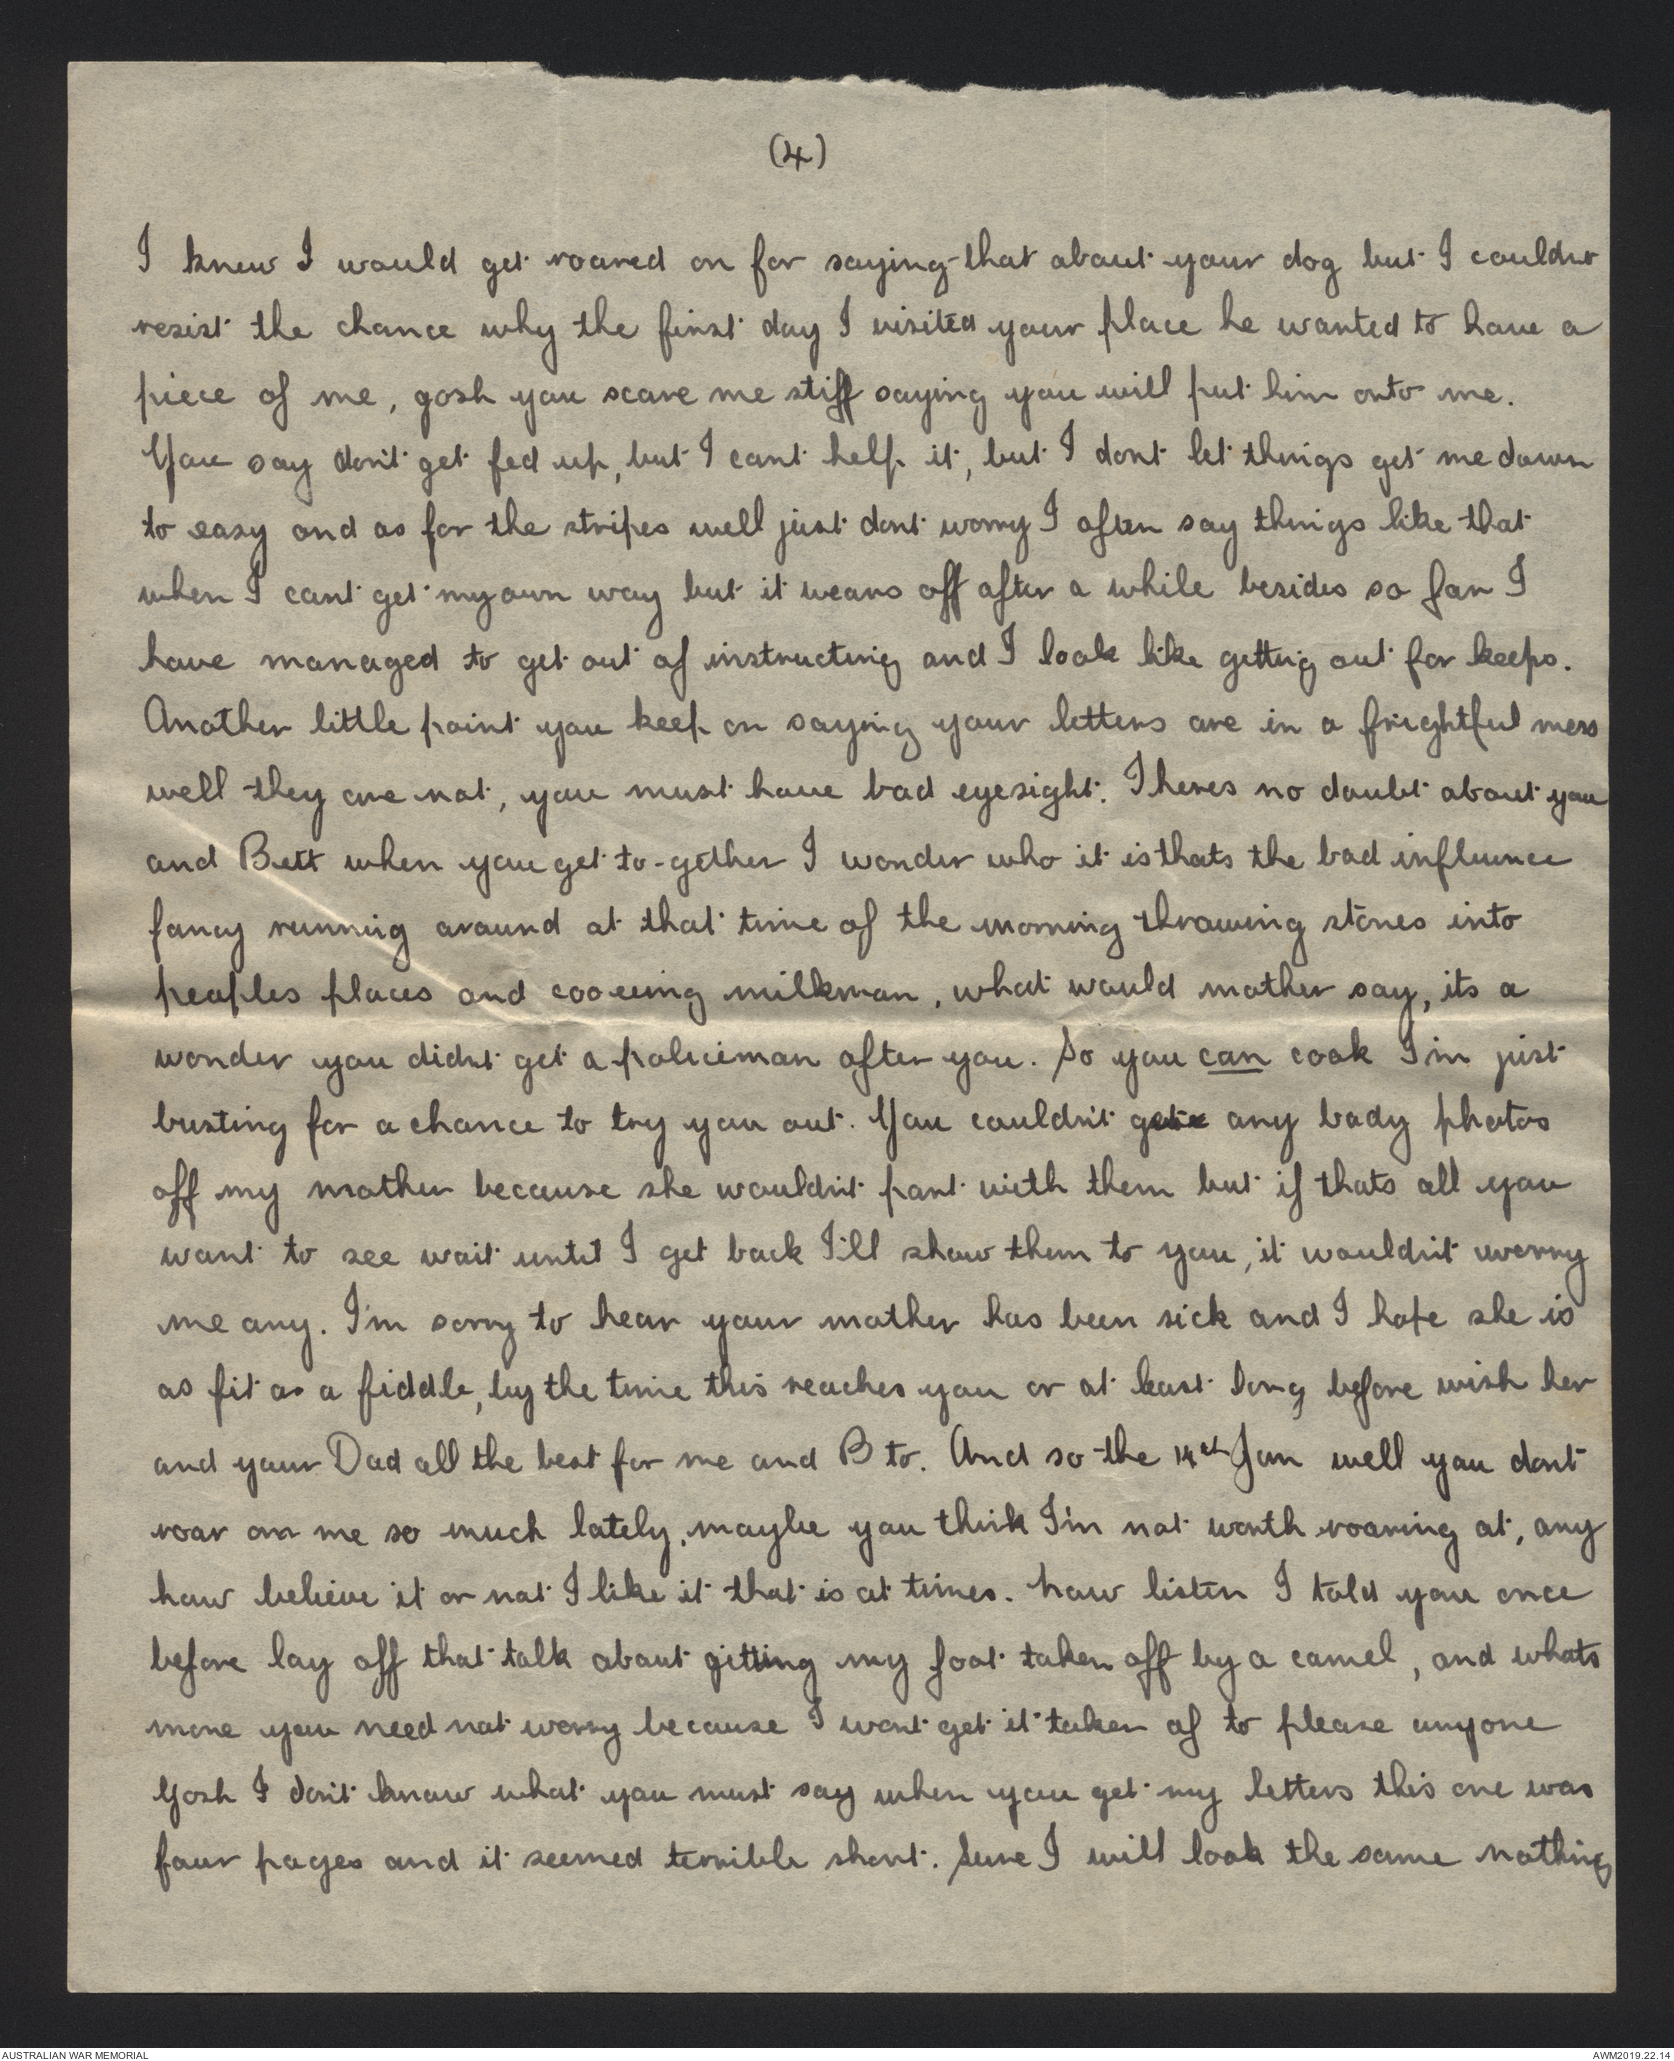 (4)
I knew I would get roared on for saying that about your dog but I couldnt
resist the chance why the first day I visited your place he wanted to have a
piece of me, gosh you scare me stiff saying you will put him onto me.
You say don't get fed up, but I cant help it, but I dont let things get me down
to easy and as for the stripes well just dont worry I often say things like that
when I cant get my own way but it wears off after a while besides so far I
have managed to get out of instructing and I look like getting out for keeps.
Another little point you keep on saying your letters are in a frightful mess
well they are not, you must have bad eyesight. Theres no doubt about you
and Bett when you get to-gether I wonder who it is thats the bad influence
fancy running around at that time of the morning throwing stones into
peoples places and cooeeing milkman, what would mother say, its a
wonder you didnt get a policeman after you. So you can cook I'm just
busting for a chance to try you out. You couldn't get any bady photos
off my mother because she wouldn't part with them but if thats all you
want to see wait until I get back I'll show them to you, it wouldn't worry
me any. I'm sorry to hear your mother has been sick and I hope she is
as fit as a fiddle, by the time this reaches you or at least long before wish her
and your Dad all the best for me and B to. And so the 14th Jan well you dont
roar on me so much lately, maybe you think I'm not worth roaring at, any
how believe it or not I like it that is at times. how listen I told you once
before lay off that talk about getting my foot taken off by a camel, and whats
more you need not worry because I wont get it taken of to please anyone
Gosh I don't know what you must say when you get my letters this one was
four pages and it seemed terrible short. Sure I will look the same nothing
AUSTRALIAN WAR MEMORIAL
AWM2019.22.14